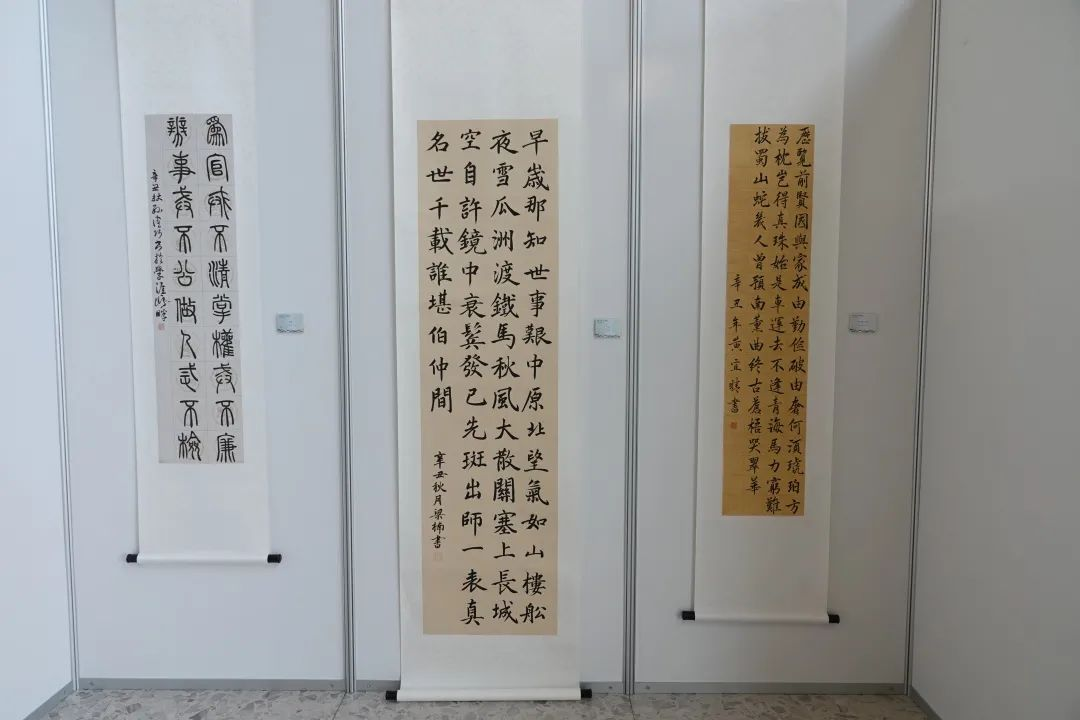 歷覽前賢國與家成由勤儉破由奢何須琥珀方
為枕豈得真珠始是車運去不逢青海馬力窮難
拔蜀山蛇幾人曾預南薰曲終古蒼梧哭翠華
辛丑年黃宜書
早歲那知世事艱中原北望氣如山樓舩
夜雪瓜洲渡鐵馬秋風大散關塞上長城
空自許鏡中衰鬢發已先斑出師一表真
名世千載誰堪伯仲間
辛丑秋月梁楠書
為官不清掌權不廉
辦事不公做人忌不檢
辛丑秋